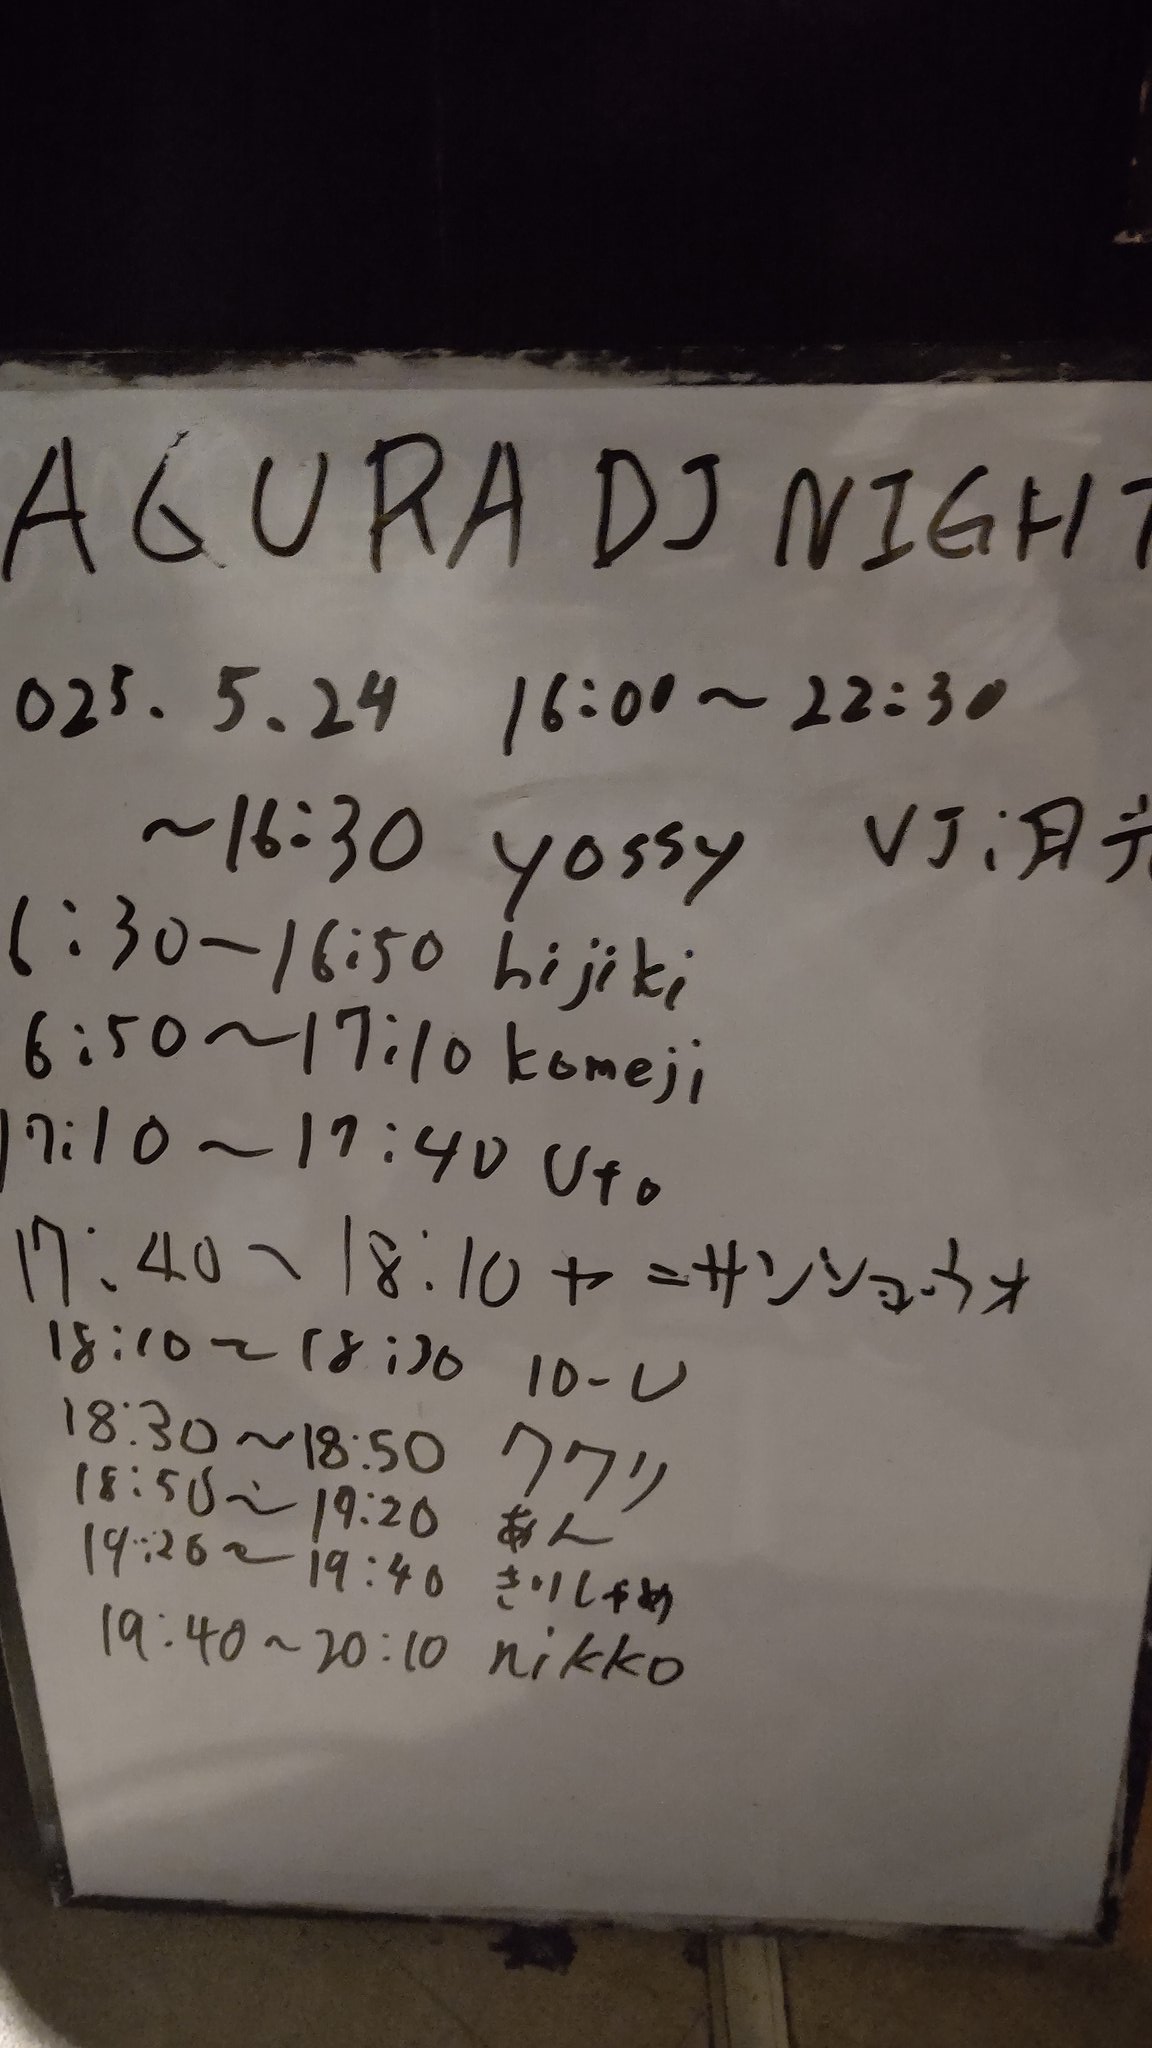 AGURA DJ NIGHT
025. 5.24 16:00～22:30
～16:30 yossy VJ:
6:30～16:50 hijiki
6:50～17:10 komeji
17:10～17:40 Uto
17:40～18:10
18:10～18:30 10-U
18:30～18:50 ククリ
18:50～19:20 あん
19:20～19:40 きりしゃめ
19:40～20:10 nikko